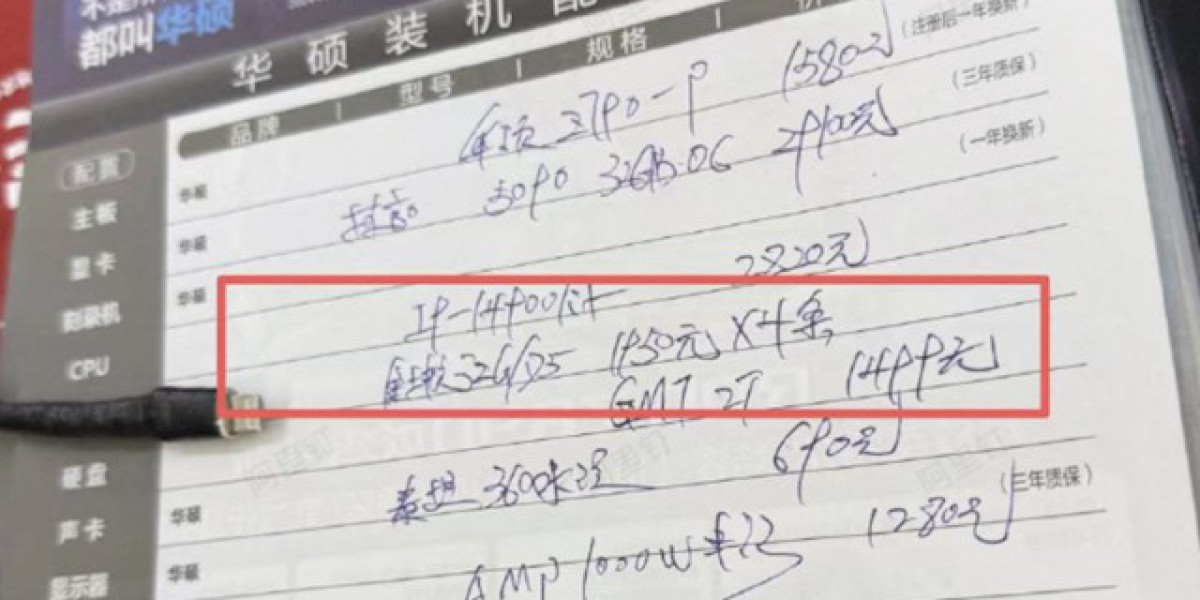 都叫华硕
华硕装机配
品牌 | 型号 | 规格 | 价
配置
主板
显卡
刻录机
CPU
硬盘
声卡
显示器
Z790-P 1580元 (注册后一年换新)
华硕 5090 32GB·OG (三年质保)
华硕 (一年换新)
华硕 2820元
I9-14900K
32G D5 1950元×4条
GMT 2T 1499元
泰坦360水冷 690元
华硕 (三年质保)
华硕 AMP 1000W 1280元